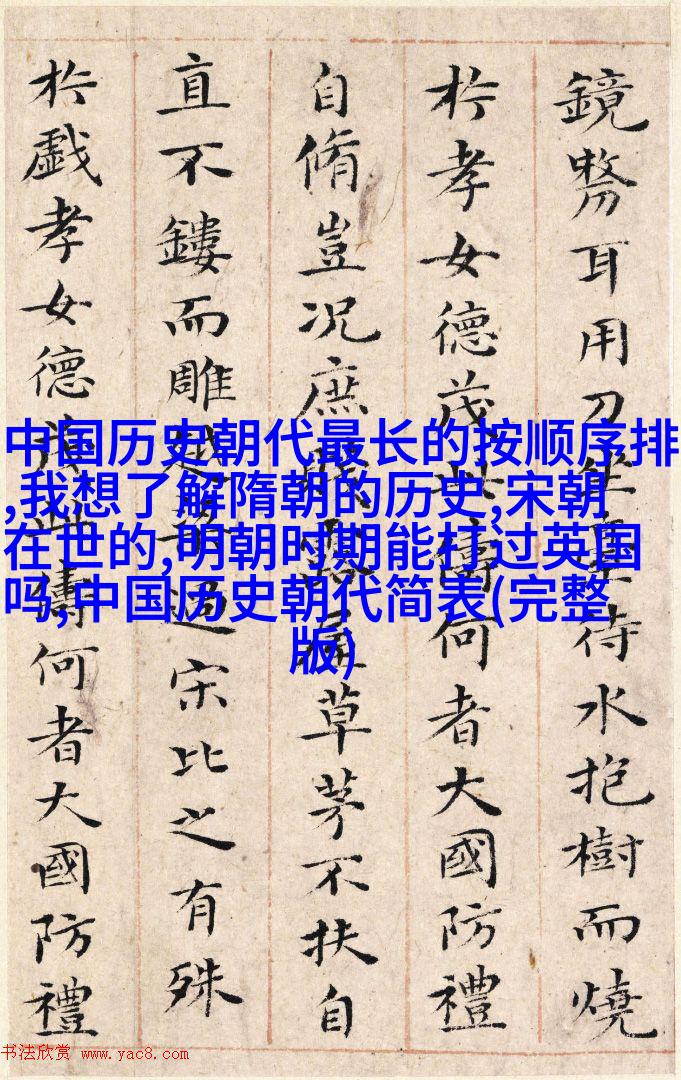 中国历史朝代最长的按顺序排
,我想了解隋朝的历史,宋朝
在世的,明朝时期能打过英国
吗,中国历史朝代简表(完整
版)
鏡剺耳用刀坐臺待水抱樹而燒
於孝女德茂此儔何者大國防禮
自脩豈况庶草茅不扶自
直不鏤而雕越過宋比之有殊
於戲孝女德茂此儔何者大國防禮
书法欣赏 www.yac8.com